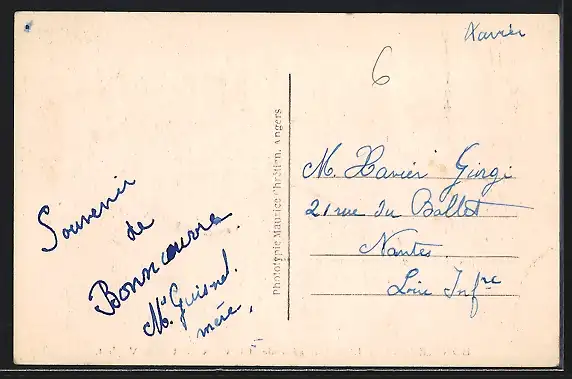 Xavier
6
Souvenir
de
Bonnoeuvre
Me Guisnel.
mère,
Phototypie Maurice Chrétien, Angers
M. Xavier Giorgi
21 rue du Ballet
Nantes.
Loire Infre